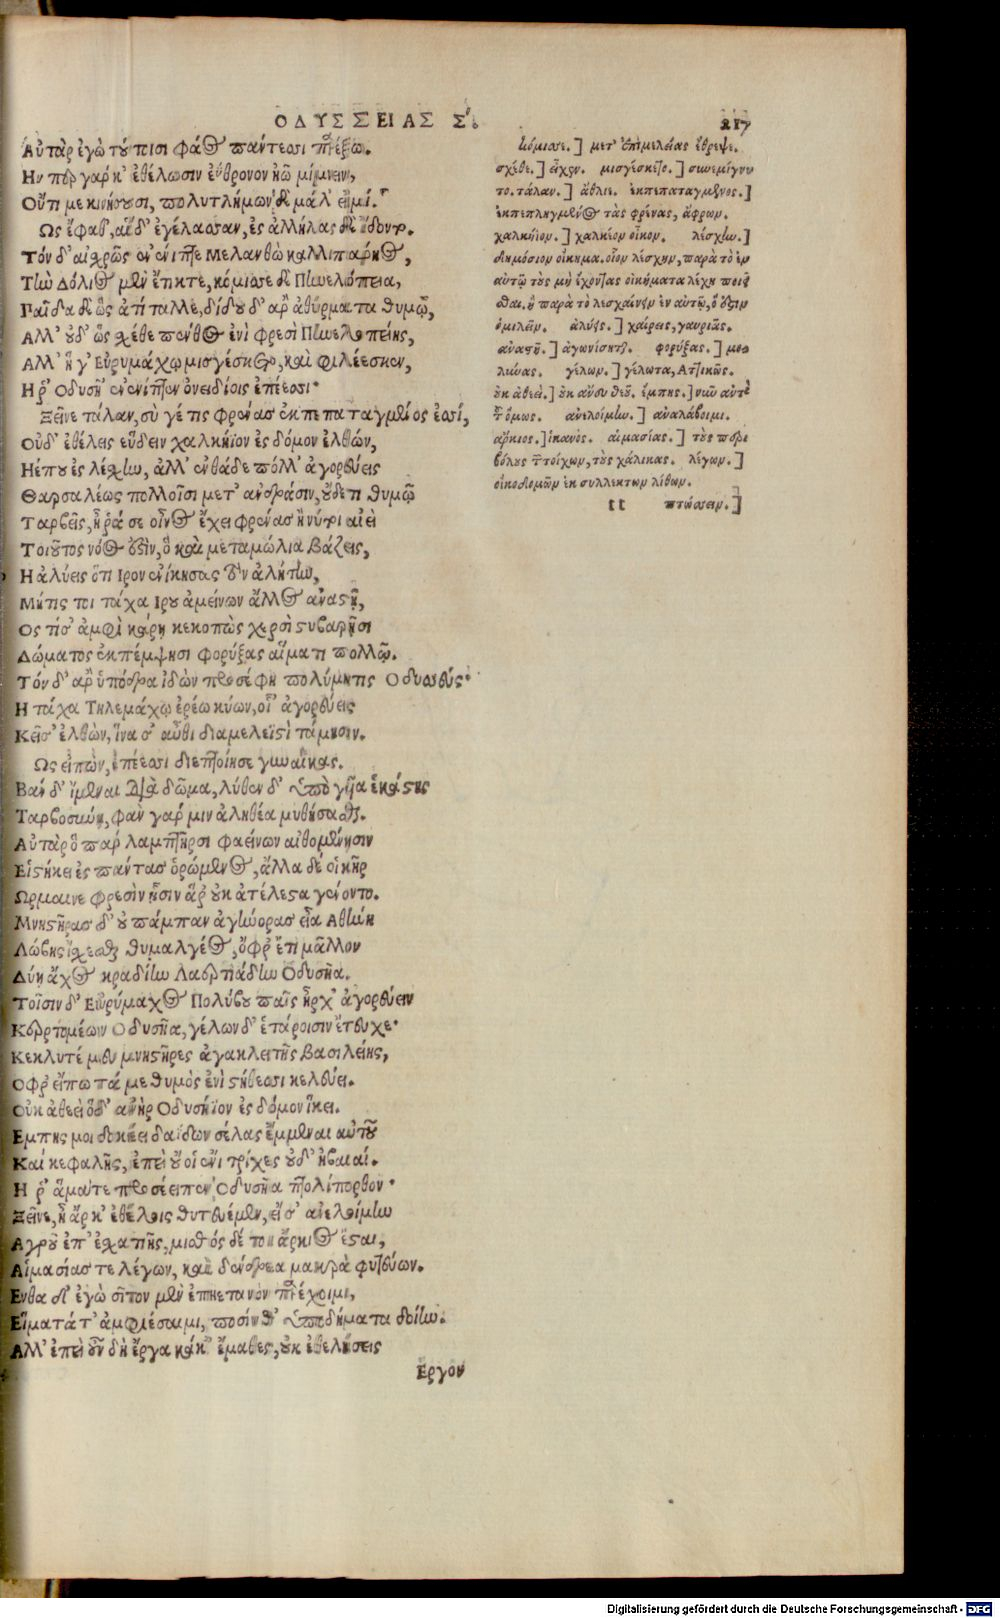 ΟΔΥΣΣΕΙΑΣ Σ. 217
Αὐτὰρ ἐγὼ τούτοισι φάος πάντεσσι παρέξω.
Ην περ γάρ κ' ἐθέλωσιν ἐΰθρονον ἠῶ μίμνειν,
Οὔτι με νικήσουσι, πολυτλήμων δὲ μάλ' εἰμί.
Ως ἔφαθ', αἱ δ' ἐγέλασσαν, ἐς ἀλλήλας δὲ ἴδοντο.
Τόν δ' αἰσχρῶς ἐνένιπτε Μελανθὼ καλλιπάρηος,
Τὴν Δόλιος μὲν ἔτικτε, κόμισσε δὲ Πηνελόπεια,
Παῖδα δὲ ὣς ἀτίταλλε, δίδου δ' ἄρ' ἀθύρματα θυμῷ,
Αλλ' οὐδ' ὣς σχέθε πένθος ἐνὶ φρεσὶ Πηνελοπείης,
Αλλ' ἥ γ' Εὐρυμάχῳ μισγέσκετο, καὶ φιλέεσκεν,
Η ῥ' Οδυσῆ' ἐνένιπτεν ὀνειδίοις ἐπέεσσι·
Ξεῖνε τάλαν, σύ γέ τις φρένας ἐκπεπαταγμένος ἐσσί,
Οὐδ' ἐθέλεις εὕδειν χαλκήϊον ἐς δόμον ἐλθών,
Ηέ που ἐς λέσχην, ἀλλ' ἐνθάδε πόλλ' ἀγορεύεις
Θαρσαλέως πολλοῖσι μετ' ἀνδράσιν, οὐδέ τι θυμῷ
Ταρβεῖς, ἦ ῥά σε οἶνος ἔχει φρένας ἤ νύ τοι αἰεὶ
Τοιοῦτος νόος ἐστὶν, ὃ καὶ μεταμώλια βάζεις,
Η ἀλύεις ὅτι Ιρον ἐνίκησας τὸν ἀλήτην,
Μήτις τοι τάχα Ιρου ἀμείνων ἄλλος ἀναστῇ,
Ος τίς σ' ἀμφὶ κάρη κεκοπὼς χερσὶ στιβαρῇσι
Δώματος ἐκπέμψησι φορύξας αἵματι πολλῷ.
Τόν δ' ἄρ' ὑπόδρα ἰδὼν προσέφη πολύμητις Οδυσσεύς·
Η τάχα Τηλεμάχῳ ἐρέω κύων, οἷ' ἀγορεύεις
Κεῖσ' ἐλθών, ἵνα σ' αὖθι διαμελεϊστὶ τάμησιν.
Ως εἰπών, ἐπέεσσι διεπτοίησε γυναῖκας.
Βὰν δ' ἴμεναι διὰ δῶμα, λύθεν δ' ὑπὸ γυῖα ἑκάστης
Ταρβοσύνῃ, φὰν γάρ μιν ἀληθέα μυθήσασθαι.
Αὐτὰρ ὃ πὰρ λαμπτῆρσι φαείνων αἰθομένῃσιν
Εἱστήκει ἐς πάντας ὁρώμενος, ἄλλα δέ οἱ κῆρ
Ωρμαινε φρεσὶν ᾗσιν ἅ ῥ' οὐκ ἀτέλεστα γένοντο.
Μνηστῆρας δ' οὐ πάμπαν ἀγήνορας εἴα Αθήνη
Λώβης ἴσχεσθαι θυμαλγέος, ὄφρ' ἔτι μᾶλλον
Δύη ἄχος κραδίην Λαερτιάδην Οδυσῆα.
Τοῖσιν δ' Εὐρύμαχος Πολύβου παῖς ἦρχ' ἀγορεύειν
Κερτομέων Οδυσῆα, γέλων δ' ἑτάροισιν ἔτευχε·
Κεκλυτέ μευ μνηστῆρες ἀγακλειτῆς βασιλείης,
Οφρ' εἴπω τά με θυμὸς ἐνὶ στήθεσσι κελεύει.
Οὐκ ἀθεεὶ ὅδ' ἀνὴρ Οδυσήϊον ἐς δόμον ἵκει.
Εμπης μοι δοκέει δαΐδων σέλας ἔμμεναι αὐτοῦ
Καὶ κεφαλῆς, ἐπεὶ οὔ οἱ ἔνι τρίχες οὐδ' ἠβαιαί.
Η ῥ' ἅμα τε προσέειπεν Οδυσῆα πτολίπορθον·
Ξεῖνε, ἦ ἄρ κ' ἐθέλοις θητευέμεν, εἴ σ' ἀνελοίμην
Αγροῦ ἐπ' ἐσχατιῆς, μισθός δέ τοι ἄρκιος ἔσται,
Αἱμασίας τε λέγων, καὶ δένδρεα μακρὰ φυτεύων.
Ενθα δ' ἐγὼ σῖτον μὲν ἐπηετανὸν παρέχοιμι,
Εἵματά τ' ἀμφιέσαιμι, ποσίν θ' ὑποδήματα δοίην.
Αλλ' ἐπεὶ οὖν δὴ ἔργα κάκ' ἔμαθες, οὐκ ἐθελήσεις
Εργον
κόμισσε.] μετ' ἐπιμελείας ἔθρεψε.
σχέθε.] εἶχεν. μισγέσκετο.] συνεμίγνυ
το. τάλαν.] ἄθλιε. ἐκπεπαταγμένος.]
ἐκπεπληγμένος τὰς φρένας, ἄφρων.
χαλκήϊον.] χαλκέιον οἶκον. λέσχην.]
δημόσιον οἴκημα. οἷον λέσχην, παρὰ τὸ ἐν
αὐτῷ τοὺς μὴ ἔχοντας οἰκήματα λέχη ποιεῖ
σθαι. ἢ παρὰ τὸ λεσχαίνειν ἐν αὐτῷ, ὅ ἐστιν
ὁμιλεῖν. ἀλύεις.] χαίρεις, γαυριᾷς.
ἀναστῇ.] ἀγωνίσηται. φορύξας.] μο
λύνας. γέλων.] γέλωτα, Αττικῶς.
οὐκ ἀθεεὶ.] οὐκ ἄνευ θεοῦ. ἔμπης.] νῦν ἀντὶ
τοῦ ὅμως. ἀνελοίμην.] ἀναλάβοιμι.
ἄρκιος.] ἱκανός. αἱμασίας.] τοὺς περι
βόλους τῶν τοίχων, τοὺς χάλικας. λέγων.]
οἰκοδομῶν ἐκ συλλεκτων λίθων.
πτώσσειν.]
Digitalisierung gefördert durch die Deutsche Forschungsgemeinschaft - DFG